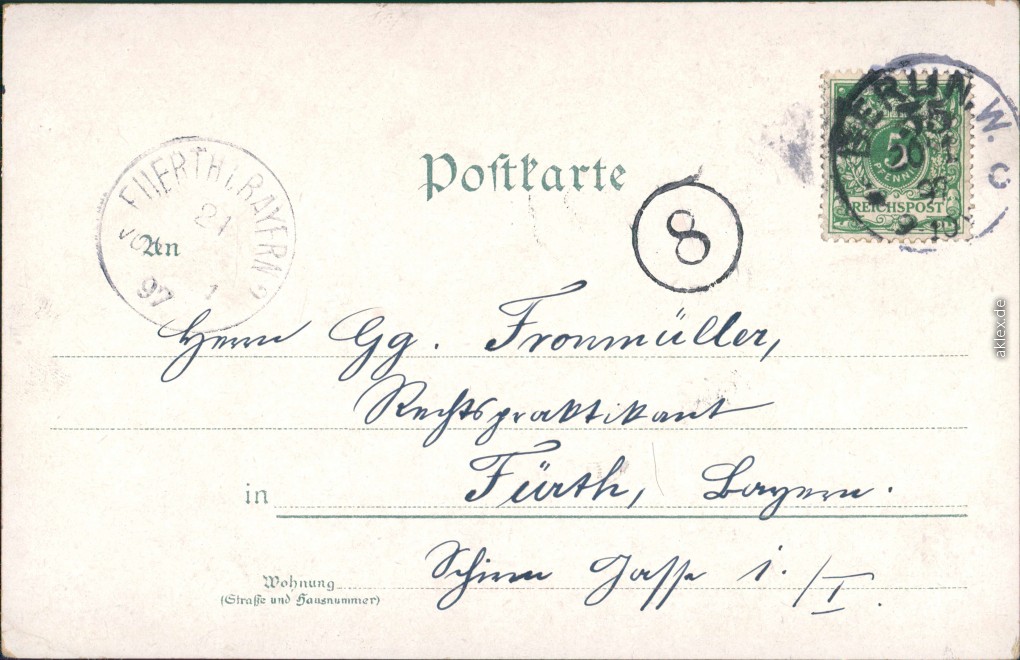 Postkarte
BERLIN. W.
35
5
PFENNIG
REICHSPOST
FUERTH i. BAYERN 2
21
97 1
An
8
Herrn Gg. Fronmüller,
Rechtspraktikant
in Fürth, Bayern.
Wohnung
(Straße und Hausnummer)
Schirm Gasse 1./I.
aklex.de